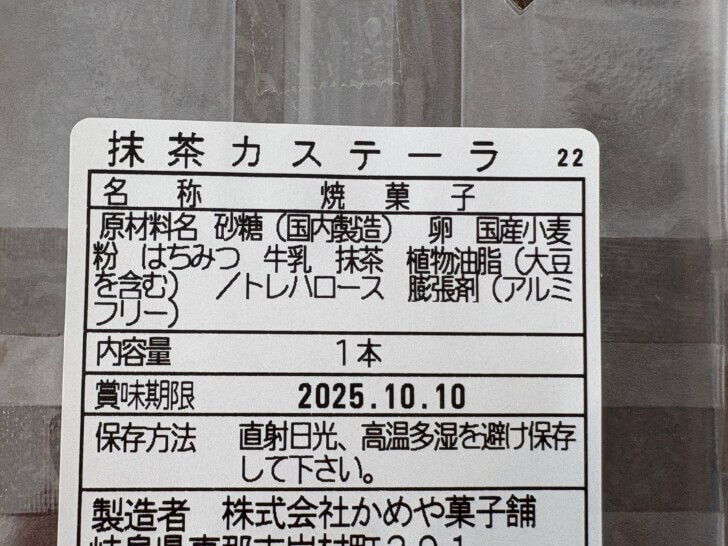 抹茶カステーラ 22
名称 焼菓子
原材料名 砂糖（国内製造） 卵 国産小麦
粉 はちみつ 牛乳 抹茶 植物油脂（大豆
を含む） ／トレハロース 膨張剤（アルミ
フリー）
内容量 1本
賞味期限 2025.10.10
保存方法 直射日光、高温多湿を避け保存
して下さい。
製造者 株式会社かめや菓子舗
岐阜県恵那市岩村町391